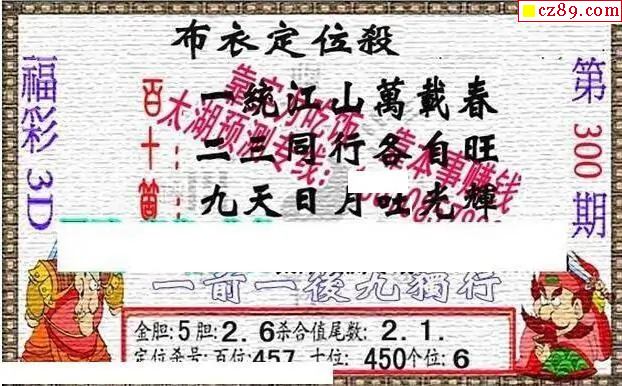 cz89.com
布衣定位殺
福彩3D
第300期
百 一統江山萬載春
十: 二三同行各自旺
箇: 九天日月吐光輝
靠实力吃饭 靠本事赚钱
太湖预测专线:
一前一後九獨行
金胆:5胆:2.6杀合值尾数:2.1.
定位杀号:百位:457 十位:450个位:6